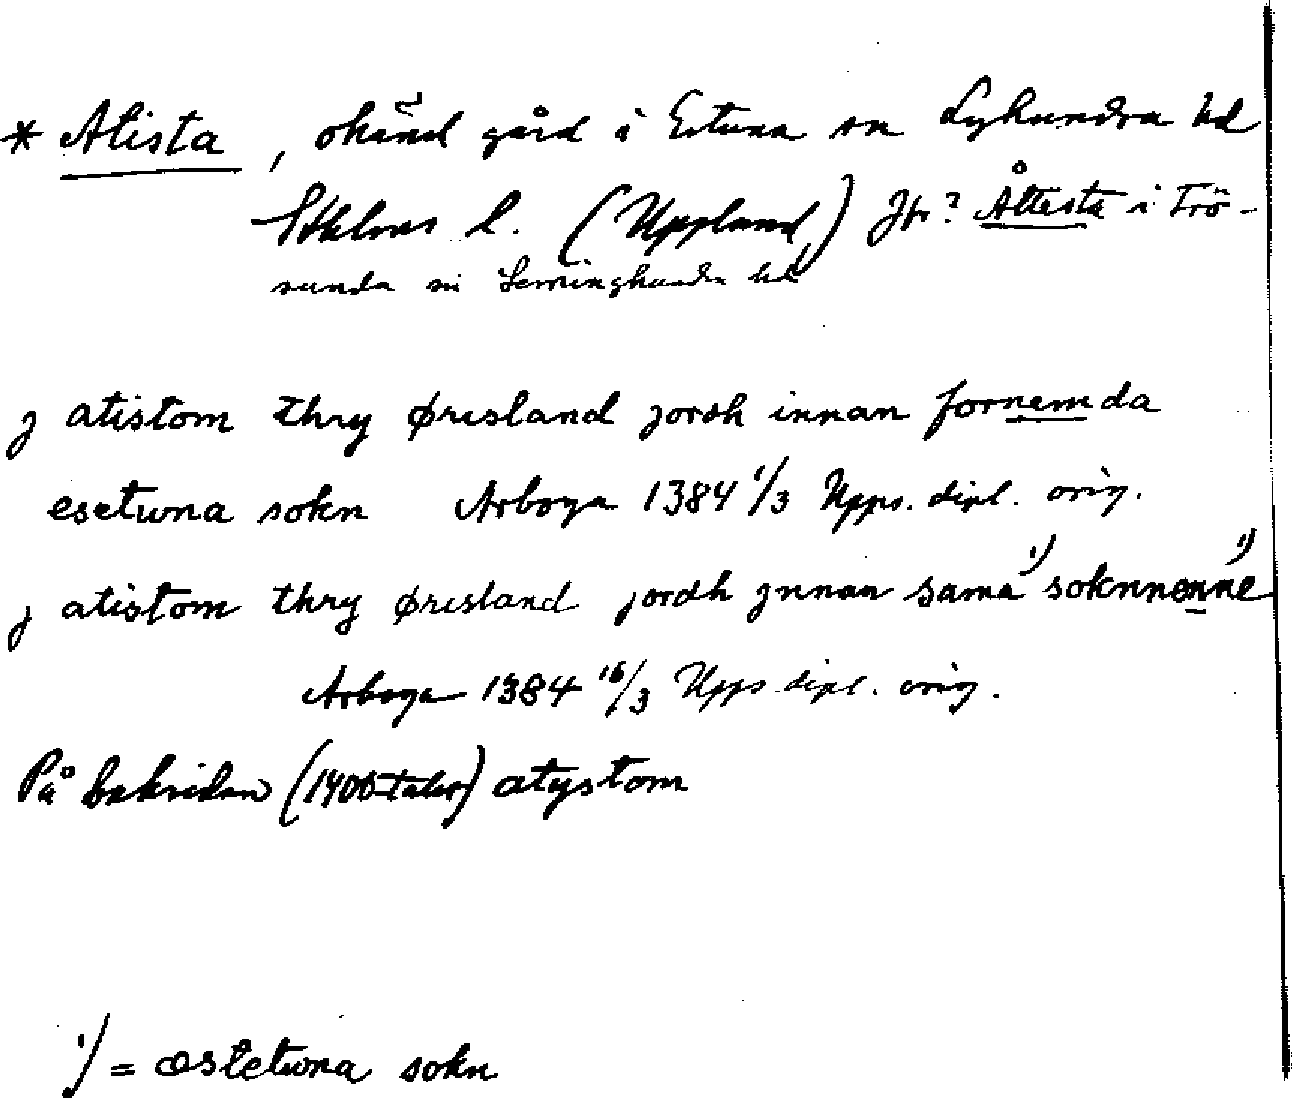 * Atista, okänd gård i Estuna sn Lyhundra hd
Sthlms l. (Uppland) Jfr? Åttesta i Frö-
sunda sn Seminghundra hd
j atistom thry ørisland jordh innan fornemda
esetuna sokn Arboga 1384 1/3 Upps. dipl. orig.
j atistom thry ørisland jordh jnnan sama 1) soknnenne 1)
Arboga 1384 16/3 Upps dipl. orig.
På baksidan (1400-talet) atystom
1) = østetuna sokn